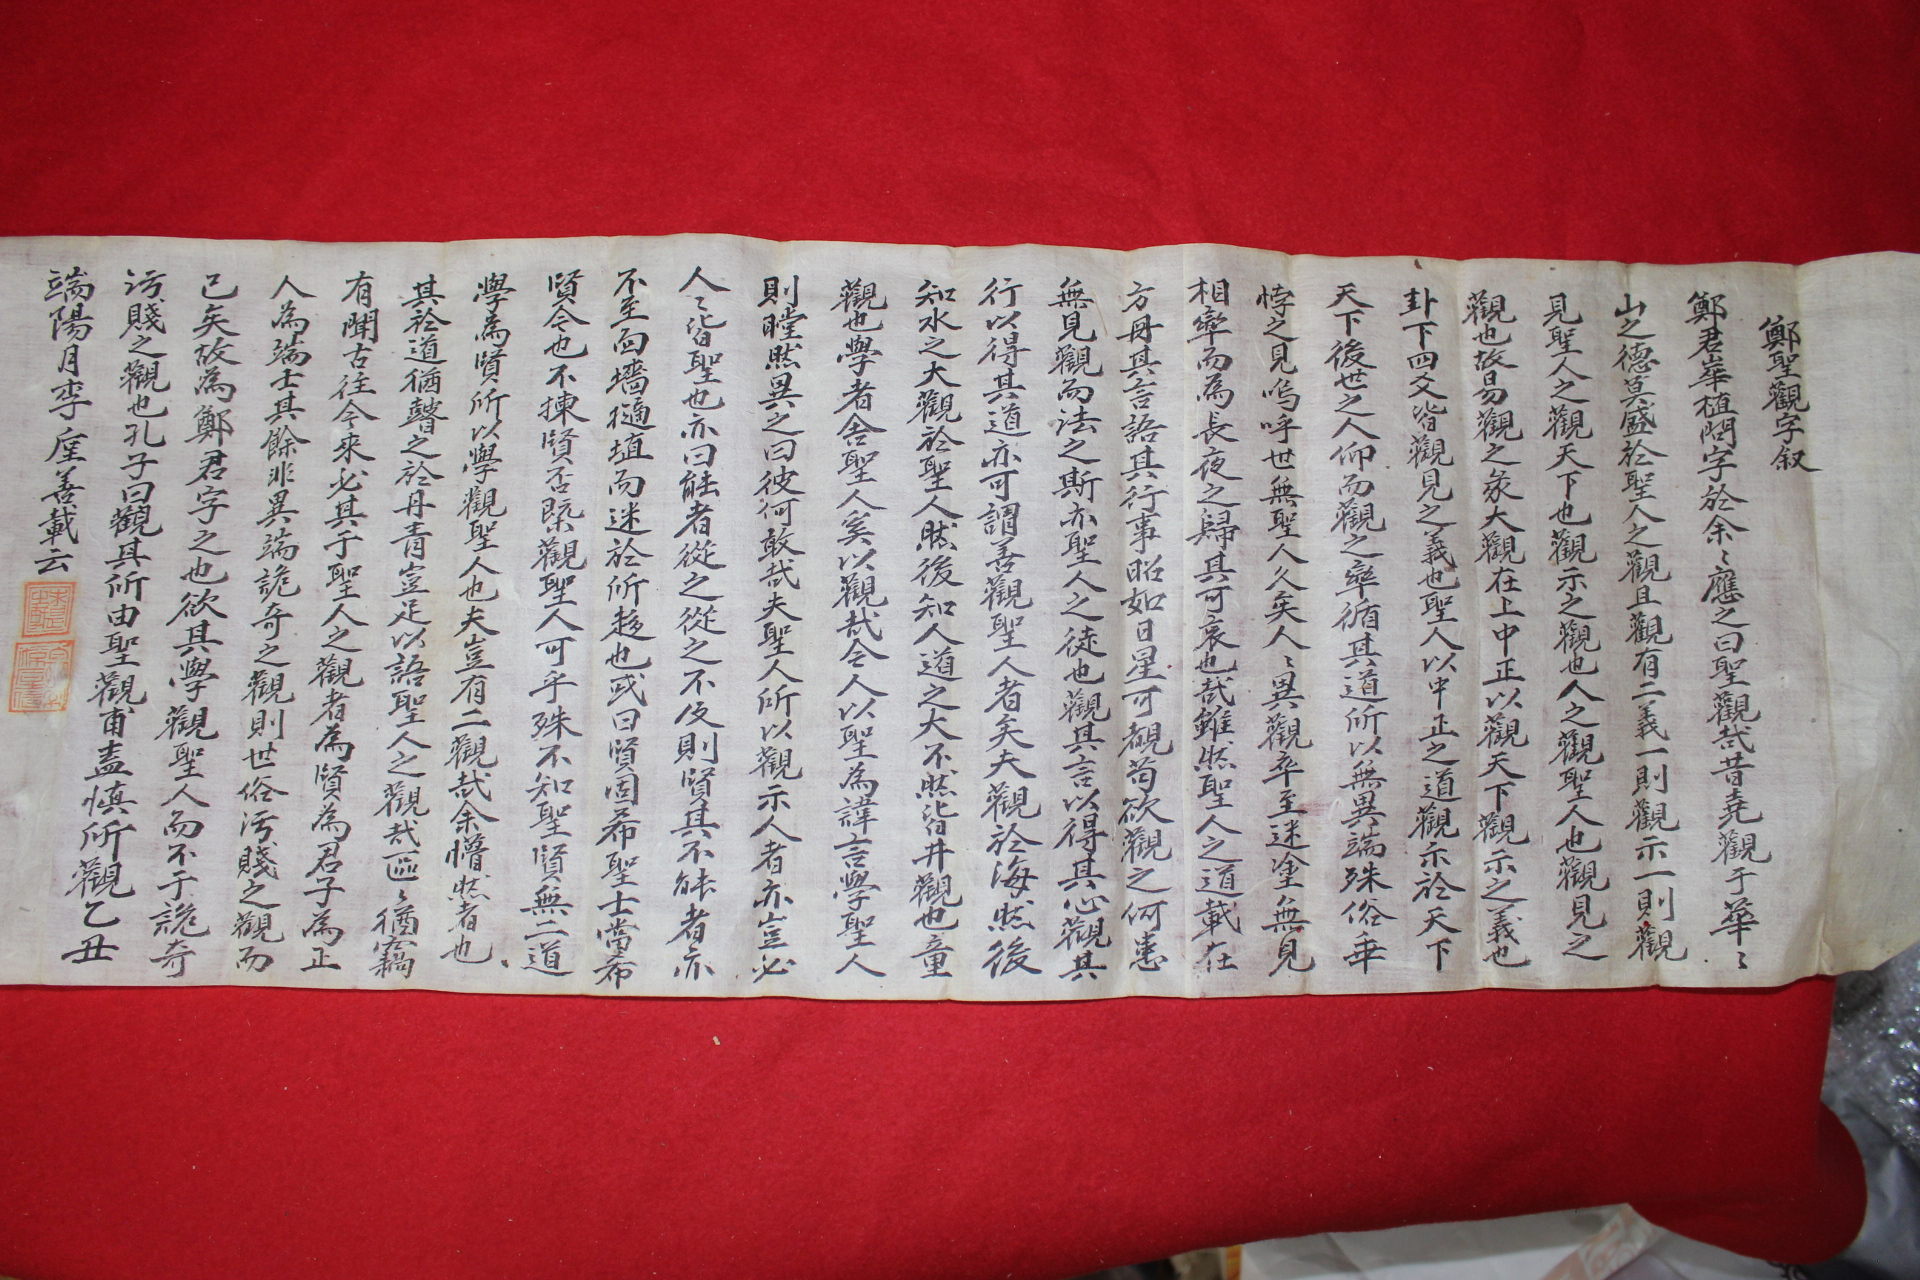 鄭聖觀字叙
鄭君崋植問字於余〻應之曰聖觀哉昔堯觀于華〻
山之德莫盛於聖人之觀且觀有二義一則觀示一則觀
見聖人之觀天下也觀示之觀也人之觀聖人也觀見之
觀也故易觀之彖大觀在上中正以觀天下觀示之義也
卦下四爻皆觀見之義也聖人以中正之道觀示於天下
天下後世之人仰而觀之率循其道所以無異端殊俗乖
悖之見嗚呼世無聖人久矣人〻異觀卒至迷塗無見
相率而為長夜之歸其可哀也哉雖然聖人之道載在
方冊其言語其行事昭如日星可覩苟欲觀之何患
無見觀而法之斯亦聖人之徒也觀其言以得其心觀其
行以得其道亦可謂善觀聖人者矣夫觀於海然後
知水之大觀於聖人然後知人道之大不然皆井觀也童
觀也學者舍聖人奚以觀哉今人以聖為諱言學聖人
則瞠然異之曰彼何敢哉夫聖人所以觀示人者亦豈必
人〻皆聖也亦曰能者從之從之不及則賢其不能者亦
不至面墻擿埴而迷於所趍也或曰賢固希聖士當希
賢今也不揀賢否槩觀聖人可乎殊不知聖賢無二道
學為賢所以學觀聖人也夫豈有二觀哉余懵然者也
其於道猶瞽之於丹靑豈足以語聖人之觀哉區〻猶竊
有聞古往今來必其于聖人之觀者為賢為君子為正
人為端士其餘非異端詭奇之觀則世俗汚賤之觀而
已矣故為鄭君字之也欲其學觀聖人而不于詭奇
汚賤之觀也孔子曰觀其所由聖觀甫盍愼所觀乙丑
端陽月李㢈善載云